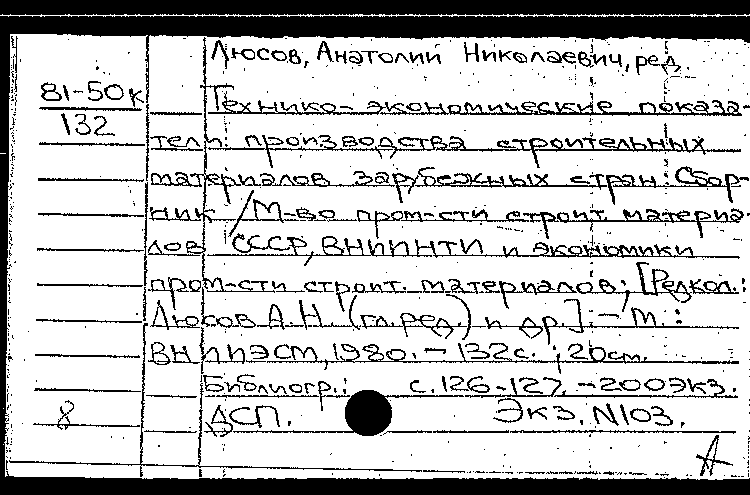 Люсов, Анатолий Николаевич, ред.
81-50к
132
Технико-экономические показа-
тели производства строительных
материалов зарубежных стран: Сбор-
ник / М-во пром-сти строит. материа-
лов СССР, ВНИИНТИ и экономики
пром-сти строит. материалов; [Редкол.:
Люсов А.Н. (гл.ред.) и др.]. – М.:
ВНИИЭСМ, 1980. – 132 с.; 20 см.
Библиогр.: с. 126-127. – 200 экз.
8 ДСП. Экз. N103.
А